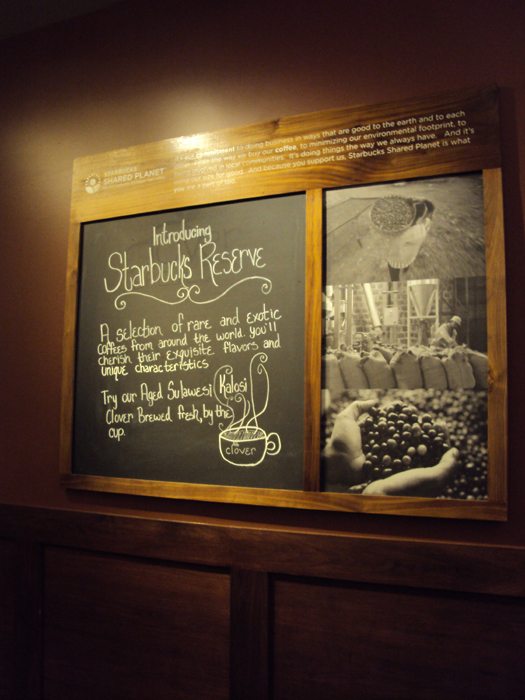 STARBUCKS
SHARED PLANET
commitment to doing business in ways that are good to the earth and to each
the way we buy our coffee, to minimizing our environmental footprint, to
involved in local communities. It's doing things the way we always have. And it's
for good. And because you support us, Starbucks Shared Planet is what
you are a part of too.
Introducing
Starbucks Reserve
A selection of rare and exotic
coffees from around the world. you'll
cherish their exquisite flavors and
unique characteristics
Try our Aged Sulawesi Kalosi
Clover Brewed fresh, by the
cup.
clover